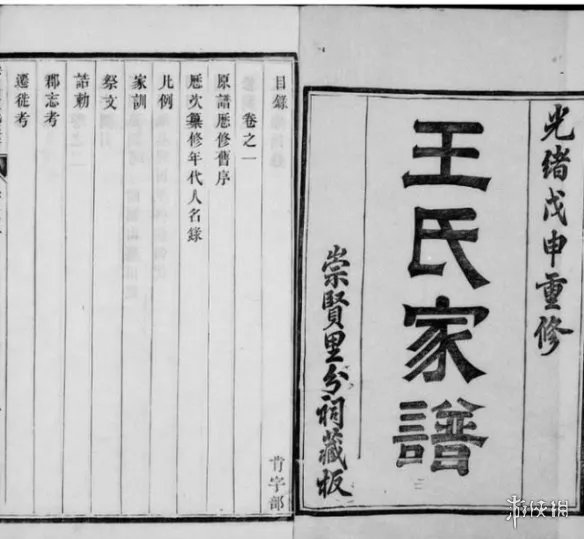 光緒戊申重修
王氏家譜
崇賢里分祠藏板
目錄
卷之一
原譜歷修舊序
歷次纂修年代人名錄
凡例
家訓
祭文
誥勅
郡志考
遷徙考
肯字部
游侠网